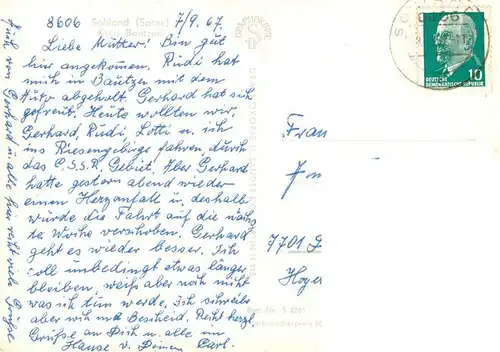 8606 Sohland (Spree) 7/9.67.
Kreis Bautzen
Liebe Mutter! Bin gut
hier angekommen. Rudi hat
mich in Bautzen mit dem
Auto abgeholt. Gerhard hat sich
gefreut. Heute wollten wir,
Gerhard, Rudi, Lotti u. ich
ins Riesengebirge fahren durch
das C.S.S.R. Gebiet. Aber Gerhard
hatte gestern abend wieder
einen Herzanfall u. deshalb
würde die Fahrt auf die näch
ste Woche verschoben. Gerhard
geht es wieder besser. Ich
soll unbedingt etwas länger
bleiben, weiß aber noch nicht
was ich tun werde. Ich schreibe
aber wih noch Bescheid. Recht herzl.
Grüße an Dich u. alle im
Hause v. Deinem Carl.
Auch von Gerhard u. alle hier recht viele Grüße
DEUTSCHE
DEMOKRATISCHE REPUBLIK
10
Frau
7701
Hoyer
Best.-Nr. S 2201